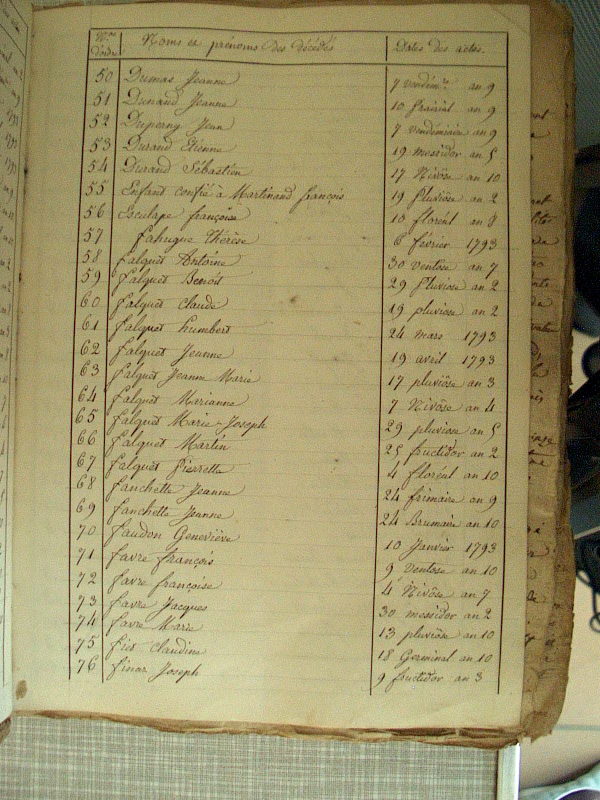 N.os d'ordre Noms et prénoms des décédés Dates des actes.
50 Dumas Jeanne 7 vendém.re an 9
51 Dunand Jeanne 10 prairial an 9
52 Duperny Jean 7 vendémiaire an 9
53 Durand Etienne 19 messidor an 5
54 Durand Sébastien 17 Nivôse an 10
55 Enfant confié à Martinand françois 19 Pluviôse an 2
56 Escalape françoise 10 floréal an 8
57 fahugue Thérèse 6 février 1793
58 falquet Antoine 30 ventose an 7
59 falquet Benoit 29 Pluviose an 2
60 falquet claude 19 pluviose an 2
61 falquet humbert 24 mars 1793
62 falquet Jeanne 19 avril 1793
63 falquet Jeanne Marie 17 pluviôse an 3
64 falquet Marianne 7 Nivôse an 4
65 falquet Marie-Joseph 29 pluviose an 5
66 falquet Martin 25 fructidor an 2
67 falquet pierrette 4 floréal an 10
68 fanchette Jeanne 24 frimaire an 9
69 fanchette Jeanne 24 Brumaire an 10
70 faudon Geneviève 10 Janvier 1793
71 favre françois 9 ventose an 10
72 favre françoise 4 Nivôse an 7
73 favre Jacques 30 messidor an 2
74 favre Marie 13 pluviôse an 10
75 fier claudine 18 Germinal an 10
76 finas Joseph 9 fructidor an 3